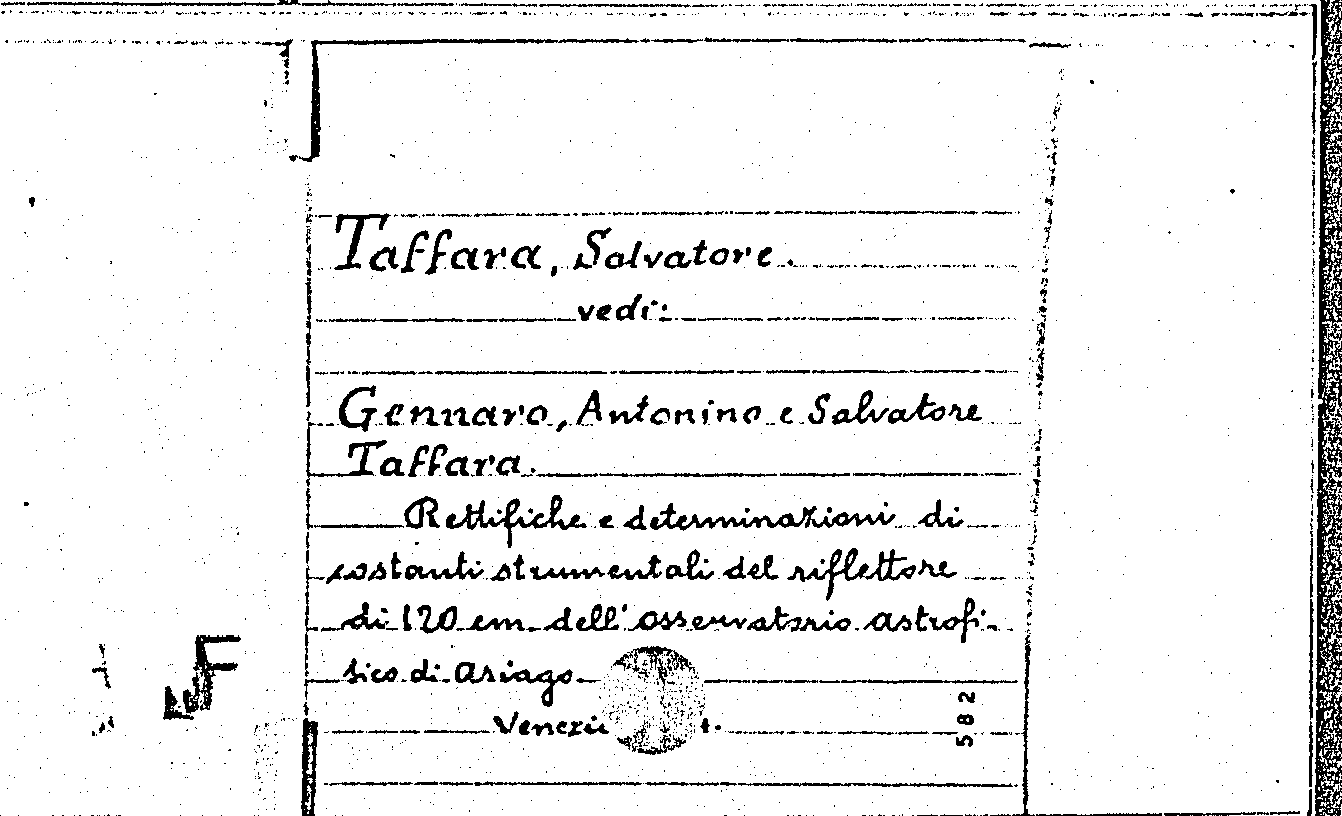 Taffara, Salvatore.
vedi:
Gennaro, Antonino e Salvatore
Taffara.
Rettifiche e determinazioni di
costanti strumentali del riflettore
di 120 cm. dell'osservatorio astrofi-
sico di Asiago.
582